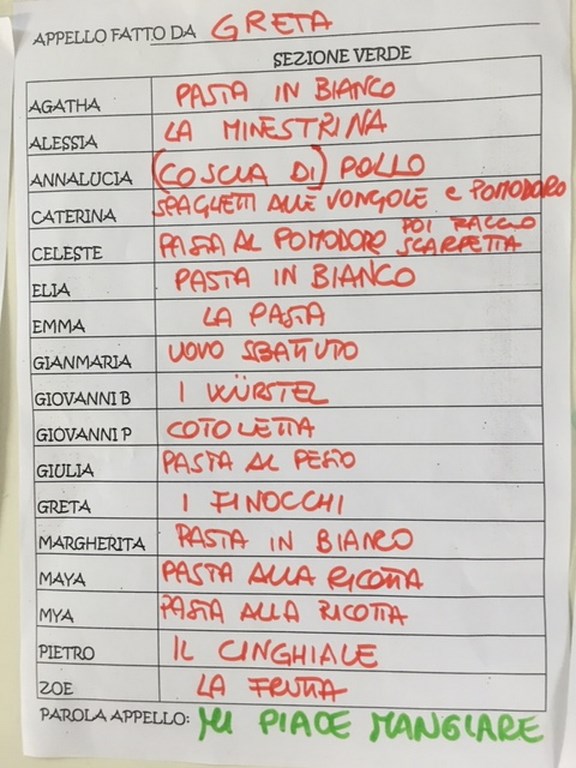 APPELLO FATTO DA GRETA
SEZIONE VERDE
AGATHA PASTA IN BIANCO
ALESSIA LA MINESTRINA
ANNALUCIA (COSCIA DI) POLLO
CATERINA SPAGHETTI ALLE VONGOLE e POMODORO
CELESTE PASTA AL POMODORO POI FACCIO SCARPETTA
ELIA PASTA IN BIANCO
EMMA LA PASTA
GIANMARIA UOVO SBATTUTO
GIOVANNI B I WÜRSTEL
GIOVANNI P COTOLETTA
GIULIA PASTA AL PESTO
GRETA I FINOCCHI
MARGHERITA PASTA IN BIANCO
MAYA PASTA ALLA RICOTTA
MYA PASTA ALLA RICOTTA
PIETRO IL CINGHIALE
ZOE LA FRUTTA
PAROLA APPELLO: MI PIACE MANGIARE